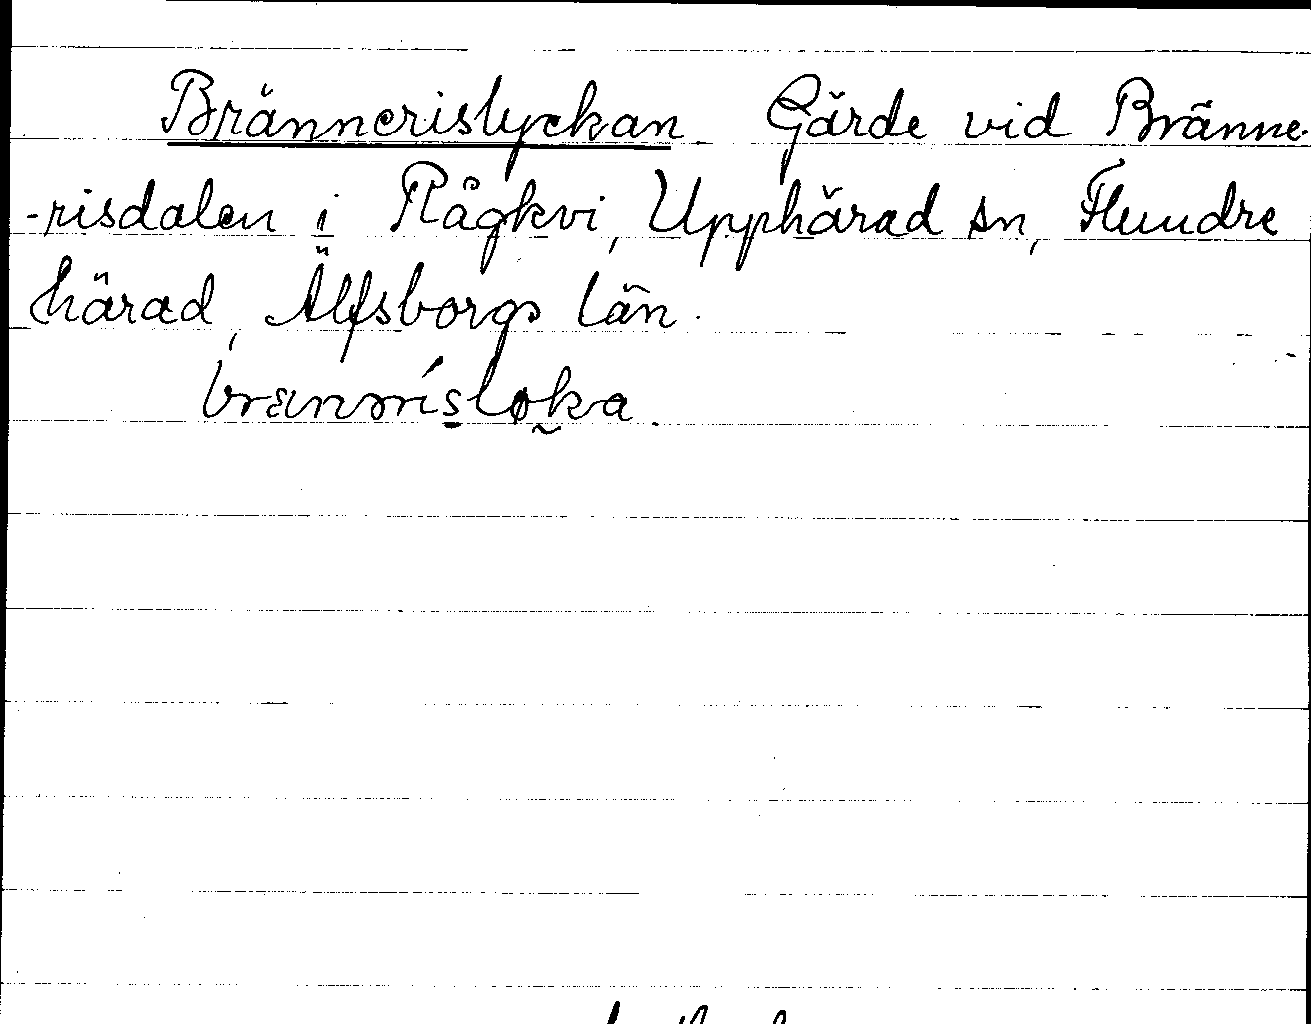 Brännerislyckan Gärde vid Bränne-
-risdalen i Rågkvi, Upphärad sn, Flundre
härad, Älfsborgs län.